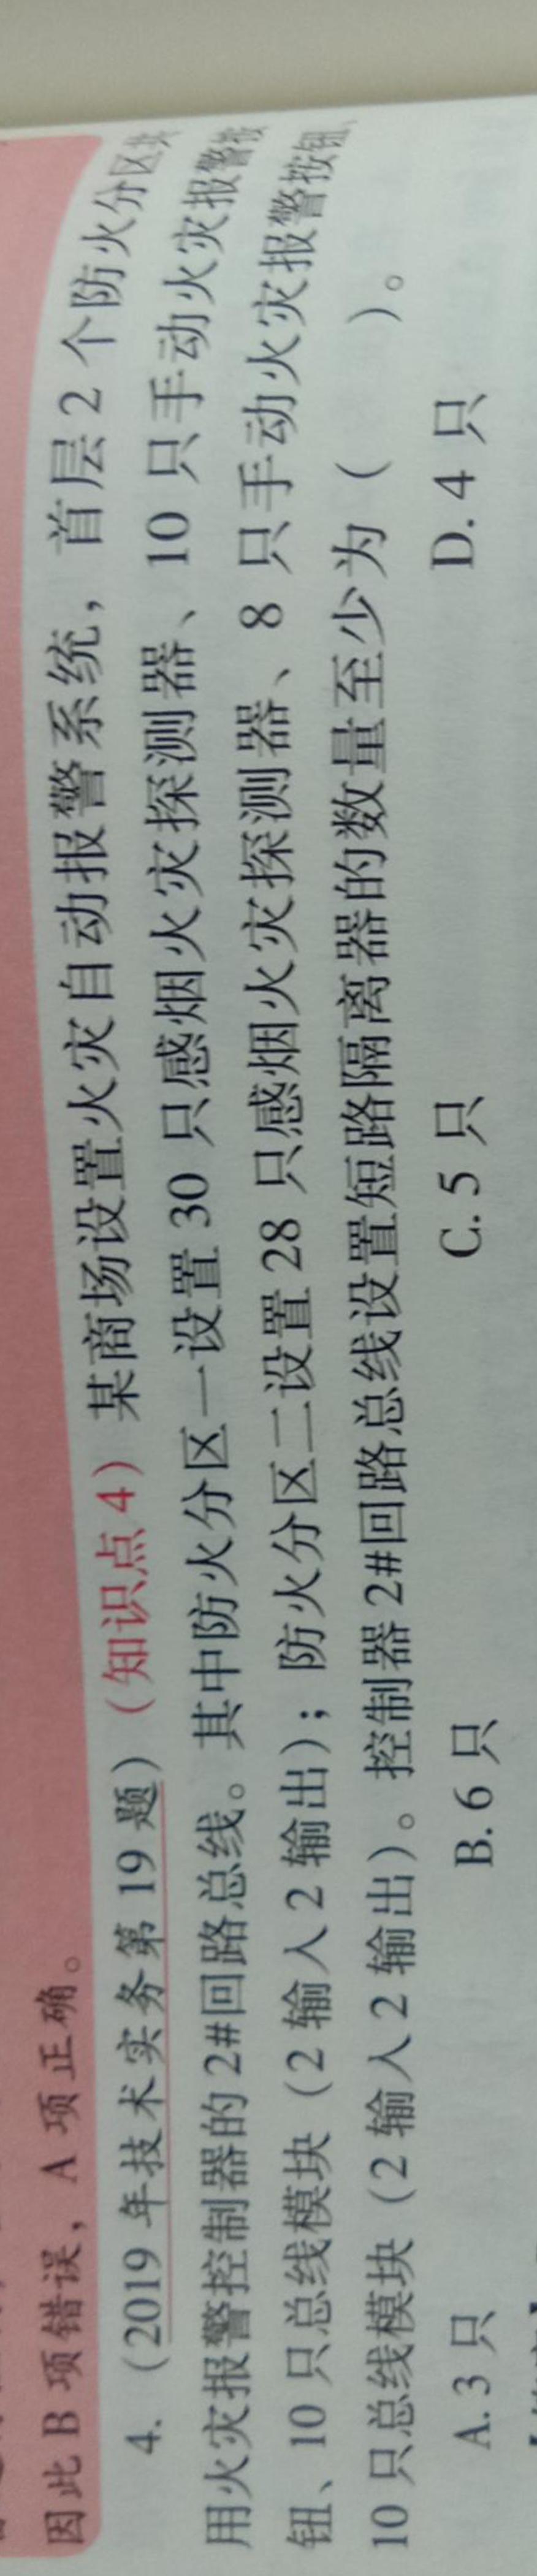 因此 B 项错误，A 项正确。
4.（2019 年技术实务第 19 题）（知识点 4）某商场设置火灾自动报警系统，首层 2 个防火分区共
用火灾报警控制器的 2#回路总线。其中防火分区一设置 30 只感烟火灾探测器、10 只手动火灾报警按
钮、10 只总线模块（2 输入 2 输出）；防火分区二设置 28 只感烟火灾探测器、8 只手动火灾报警按钮、
10 只总线模块（2 输入 2 输出）。控制器 2#回路总线设置短路隔离器的数量至少为（　　）。
A. 3 只　　B. 6 只　　C. 5 只　　D. 4 只